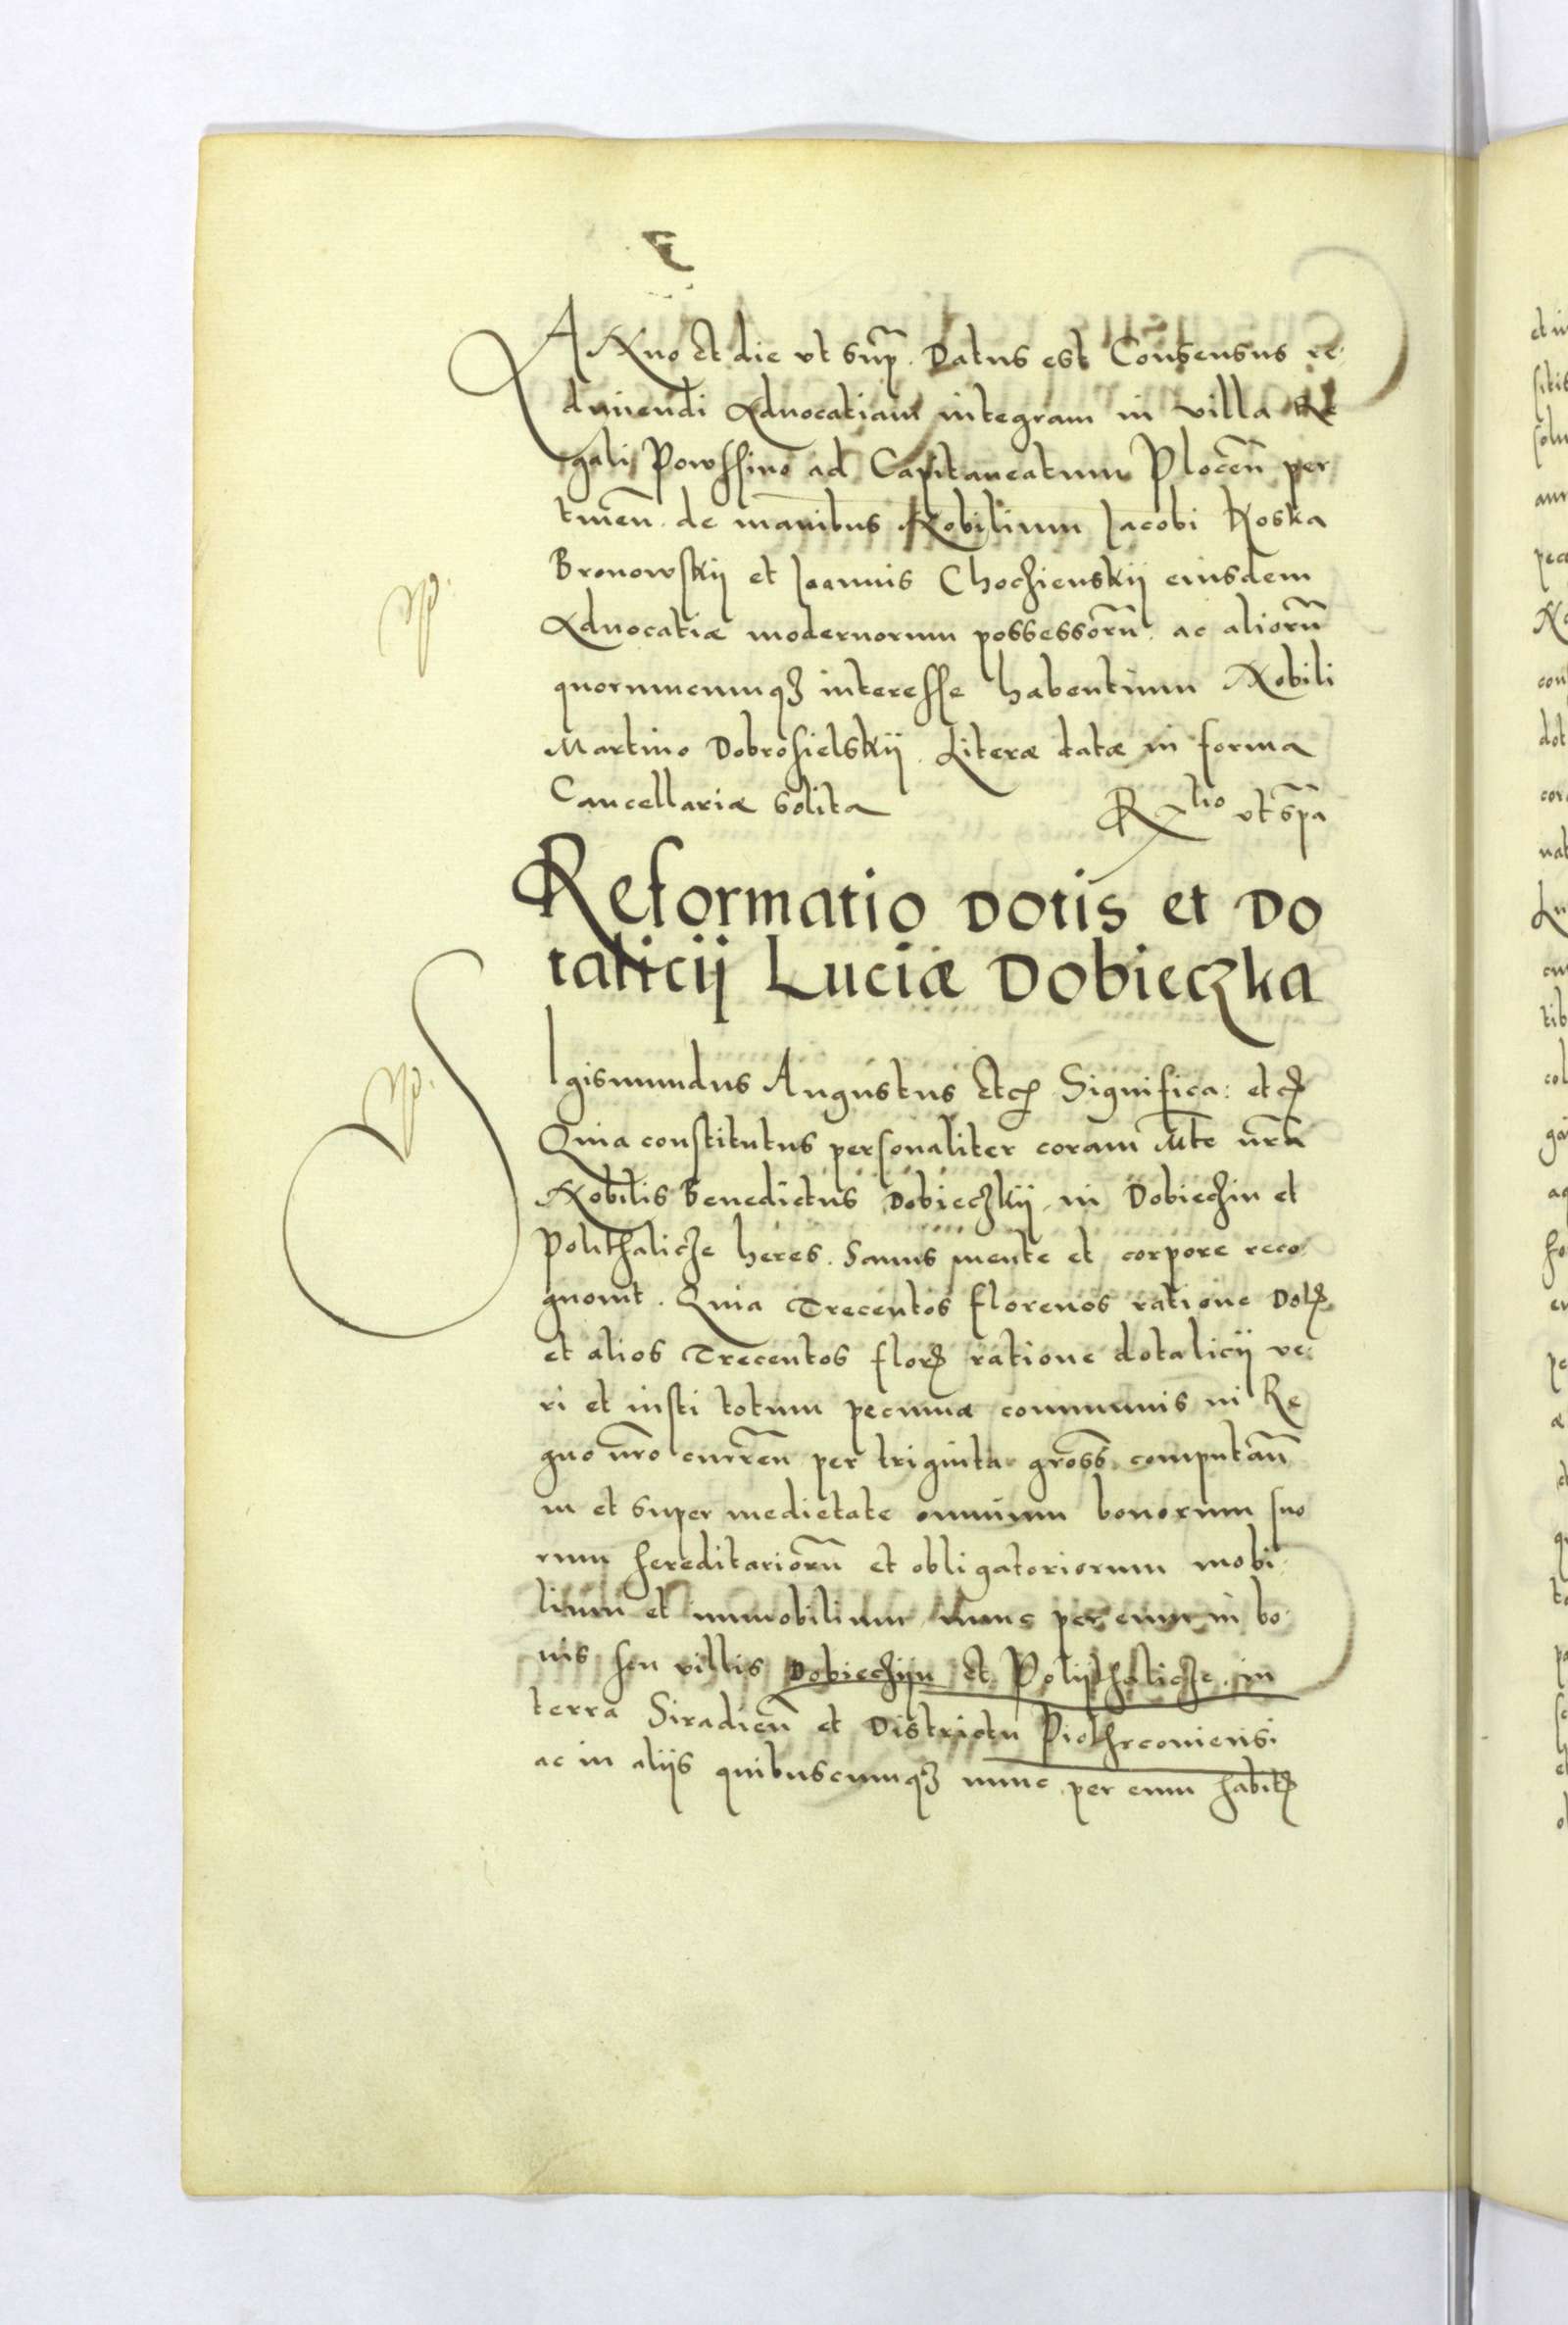 ANno et die vt sup̄. Datus est Consensus re-
dimendi Aduocatiam integram in villa Re
gali Powssino ad Capitaneatum Plocen̄ per
tinen̄. de manibus Nobilium Iacobi Koska
Bronowskij et Ioannis Choczienskij eiusdem
Aduocatiæ modernorum possessorū. ac aliorū
quorumcumqꝫ interesse habentium Nobili
Martino Dobrosielskij. Literæ datæ in forma
Cancellariæ solita
Rtio vt sp̄a
Reformatio Dotis et Do
talicij Luciæ Dobieczka
SIgismundus Augustus Etcꝭ Significa: etcꝭ
Quia constitutus personaliter coram Mte nr̄a
Nobilis Benedictus Dobieczkij in Dobieczin et
Polithalicze heres. Sanus mente et corpore reco
gnouit. Quia Trecentos florenos ratione Dotꝭ
et alios Trecentos florꝭ ratione dotalicij ve-
ri et iusti totum pecuniæ communis in Re
gno nr̄o curren̄ per triginta gross̄ computan̄
in et super medietate omnium bonorum suo
rum hereditariorū et obligatoriorum mobi-
lium et immobilium nunc per eum in bo-
nis seu villis Dobieczijn et Polijthalicze in
terra Siradien̄ et Districtu Piothrconiensi
ac in alijs quibuscumqꝫ nunc per eum habitꝭ